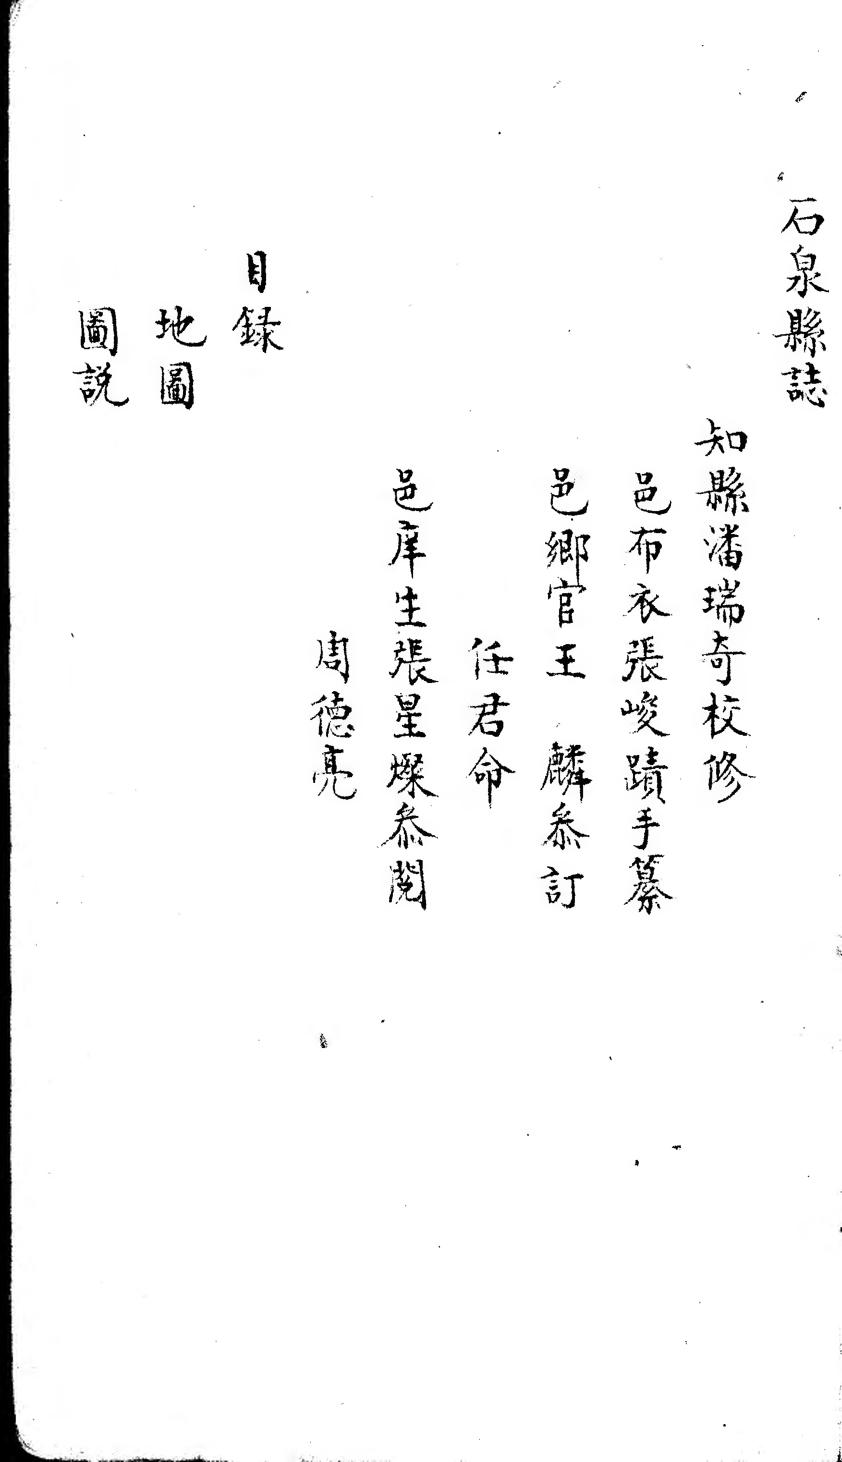 石泉縣誌
知縣潘瑞奇校修
邑布衣張峻蹟手纂
邑鄉官王　麟叅訂
任君命
邑庠生張星燦叅閱
周德亮
目録
地圖
圖説